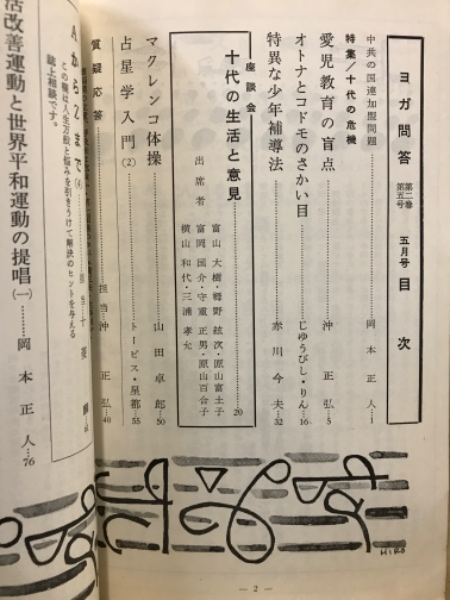 ヨガ問答 第二巻 第五号 五月号 目次
中共の国連加盟問題……岡本正人…1
特集/十代の危機
愛児教育の盲点……沖正弘…5
オトナとコドモのさかい目……じゆうびし・りん…16
特異な少年補導法……赤川今夫…32
座談会
十代の生活と意見……20
出席者
富山大樹・樽野絃次・原山富士子
富岡国介・守重正男・原山百合子
横山和代・三浦孝允
マクレンコ体操……山田卓郎…50
占星学入門(2)……トービス・星都…55
質疑応答……担当 沖正弘…40
AからZまで(4)
この欄は人生万般と悩みを引きうけて解決のヒントを与える
誌上相談です。
活改善運動と世界平和運動の提唱(一)……岡本正人…76
HIRO
— 2 —